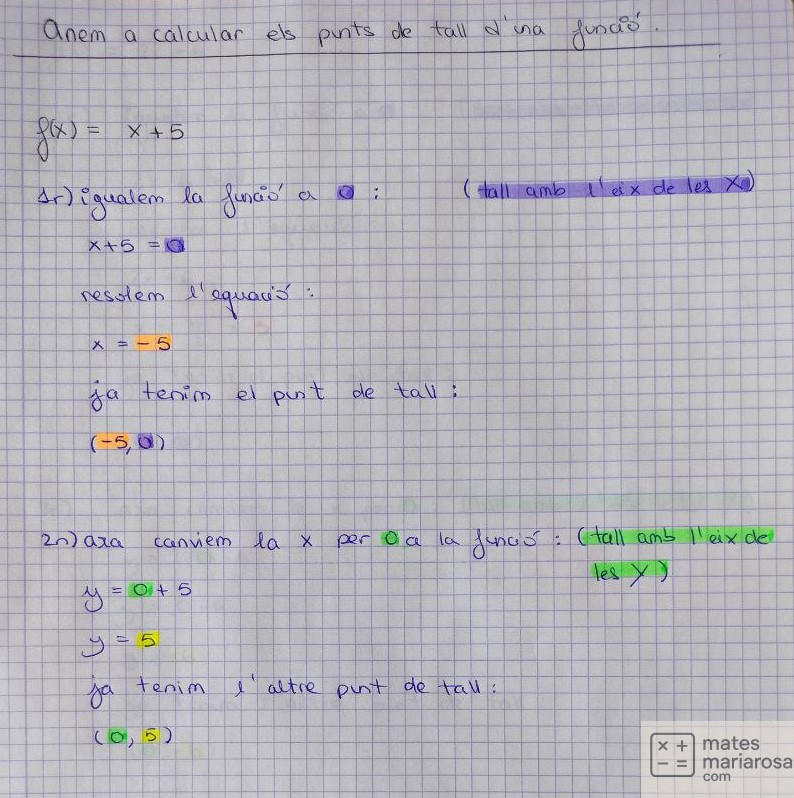 Anem a calcular els punts de tall d'una funció.
f(x) = x + 5
1r) igualem la funció a 0 : (tall amb l'eix de les X)
x+5 = 0
resolem l'equació :
x = -5
ja tenim el punt de tall :
(-5, 0)
2n) ara canviem la x per 0 a la funció : (tall amb l'eix de
les Y)
y = 0 + 5
y = 5
ja tenim l'altre punt de tall :
(0, 5)
× + − = mates
mariarosa
com